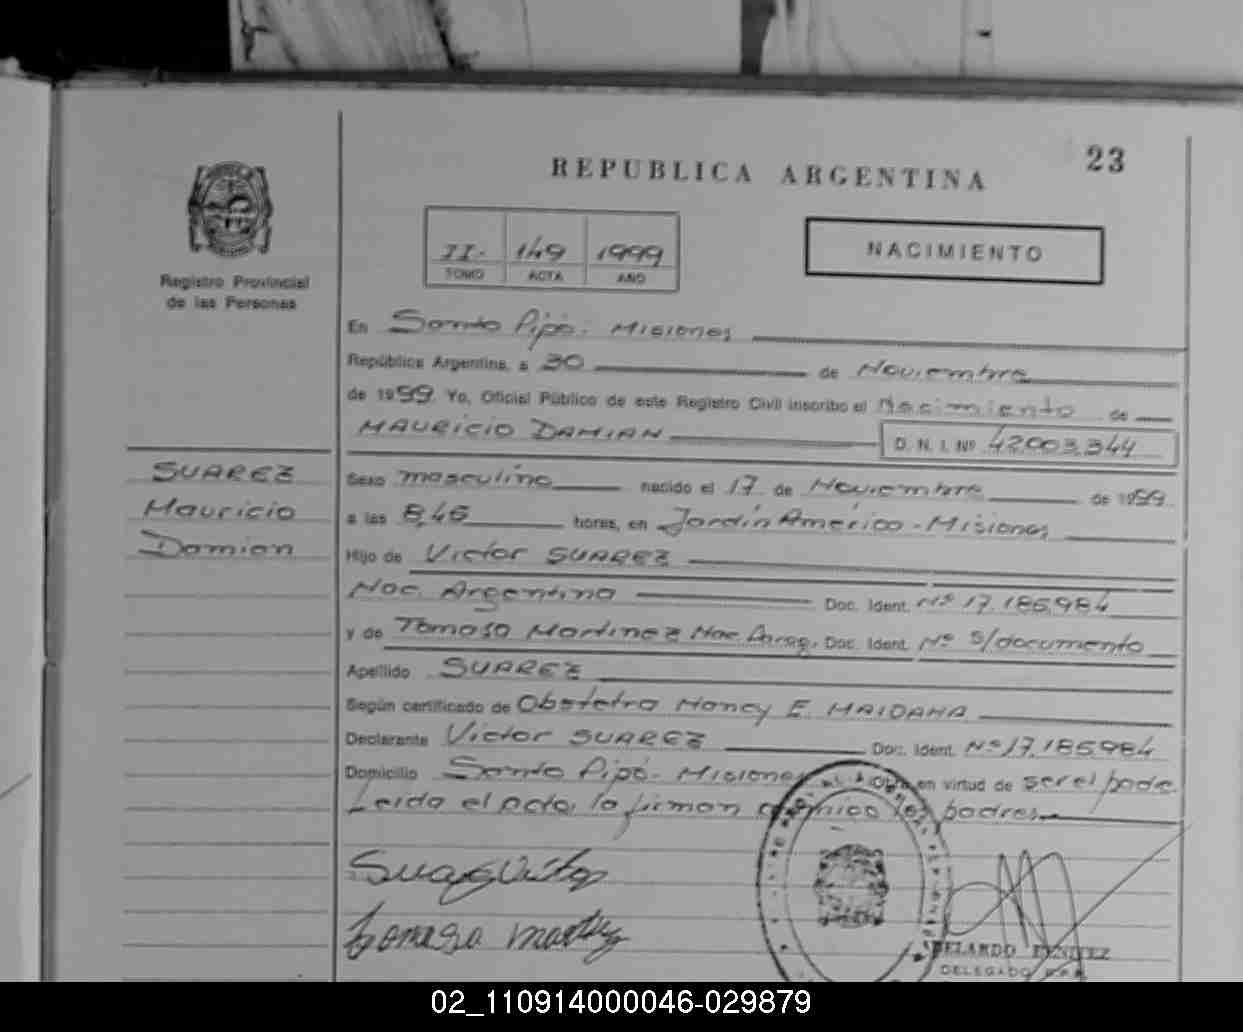 23
REPUBLICA ARGENTINA
II- 149 1999
TOMO ACTA AÑO
NACIMIENTO
Registro Provincial
de las Personas
En Santo Pipó. Misiones
República Argentina, a 30 de Noviembre
de 1999 Yo, Oficial Público de este Registro Civil inscribo el Nacimiento de
MAURICIO DAMIAN D. N. I. Nº 42.003.344
SUAREZ
Mauricio
Damian
Sexo masculino nacido el 17 de Noviembre de 1999
a las 8,45 horas, en Jardín América - Misiones
Hijo de Victor SUAREZ
Nac. Argentina Doc. Ident. Nº 17.185.984
y de Tomasa Martinez Nac. Parag. Doc. Ident. Nº s/documento
Apellido SUAREZ
Según certificado de Obstetra Nancy E. MAIDANA
Declarante Victor SUAREZ Doc. Ident. Nº 17.185.984
Domicilio Santo Pipó - Misiones Obra en virtud de ser el padre
Leida el acta, la firman conmigo los padres
Suarez Victor
Tomasa Martinez
ABELARDO BENITEZ
DELEGADO
02_110914000046-029879